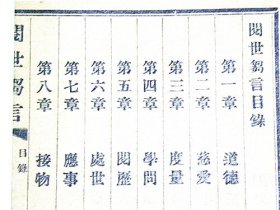 閱世芻言目錄
第一章　道德
第二章　慈愛
第三章　度量
第四章　學問
第五章　閱歷
第六章　處世
第七章　應事
第八章　接物
閱世芻言
目錄